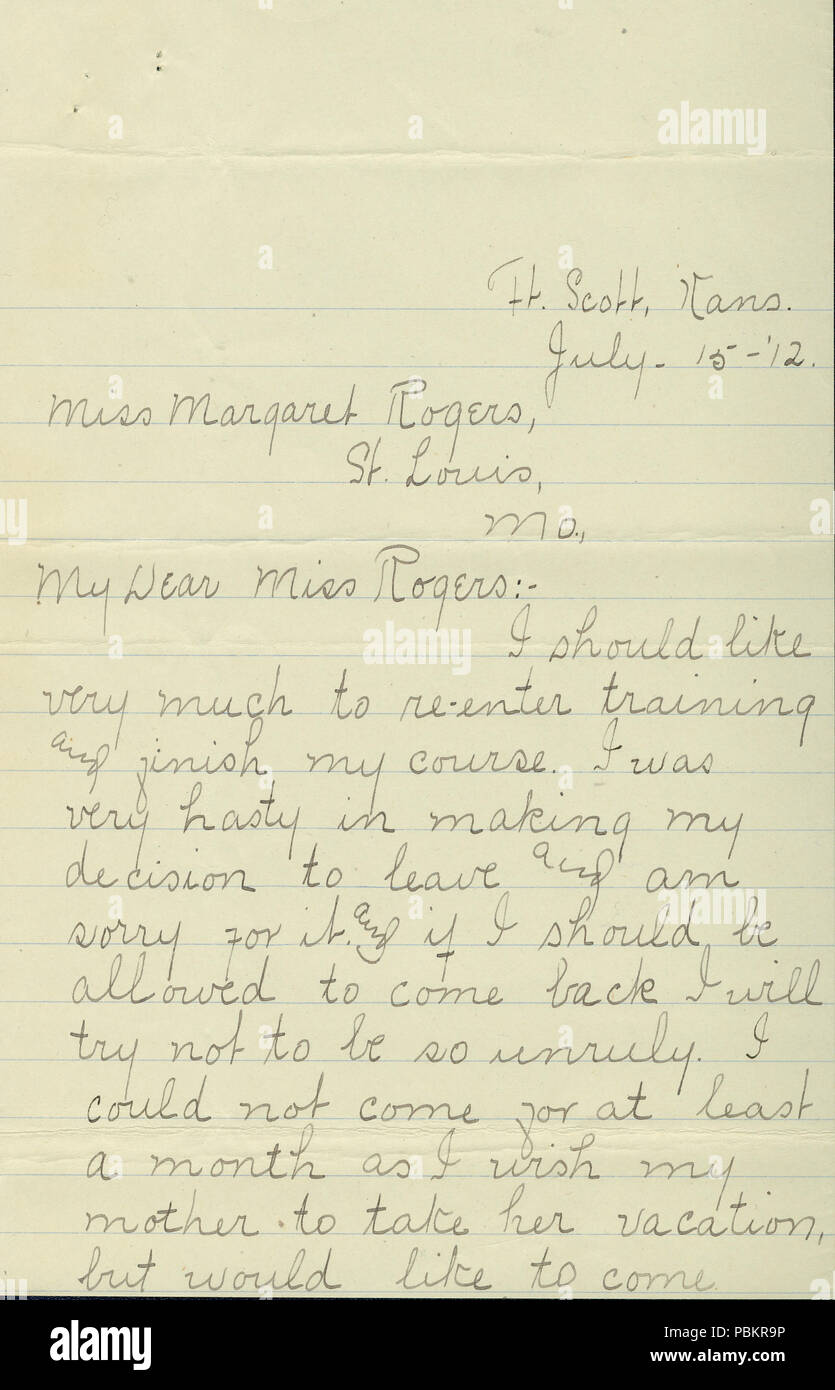 Ft. Scott, Kans.
July - 15 - '12.
Miss Margaret Rogers,
St. Louis,
Mo.,
My Dear Miss Rogers:-
I should like
very much to re-enter training
and finish my course. I was
very hasty in making my
decision to leave and am
sorry for it. and if I should be
allowed to come back I will
try not to be so unruly. I
could not come for at least
a month as I wish my
mother to take her vacation,
but would like to come
alamy
Image ID: PBKR9P
www.alamy.com